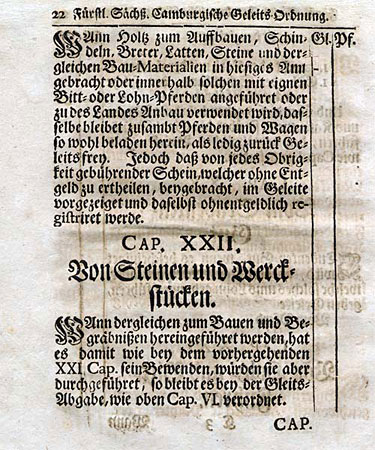 22 Fürstl. Sächß. Camburgische Geleits-Ordnung.
WAnn Holtz zum Auffbauen, Schin- Gl. Pf.
deln, Breter, Latten, Steine und der-
gleichen Bau-Materialien in hiesiges Amt
gebracht oder innerhalb solchen mit eignen
Bitt- oder Lohn-Pferden angeführet oder
zu des Landes Anbau verwendet wird, das-
selbe bleibet zusambt Pferden und Wagen
so wohl beladen herein, als ledig zurück Ge-
leitsfrey. Jedoch daß von jedes Obrig-
keit gebührender Schein, welcher ohne Ent-
geld zu ertheilen, beygebracht, im Geleite
vorgezeiget und daselbst ohnentgeldlich re-
gistriret werde.
CAP. XXII.
Von Steinen und Werck-
stücken.
WAnn dergleichen zum Bauen und Be-
gräbnißen hereingeführet werden, hat
es damit wie bey dem vorhergehenden
XXI Cap. sein Bewenden, würden sie aber
durchgeführet, so bleibt es bey der Gleits-
Abgabe, wie oben Cap. VI. verordnet.
CAP.